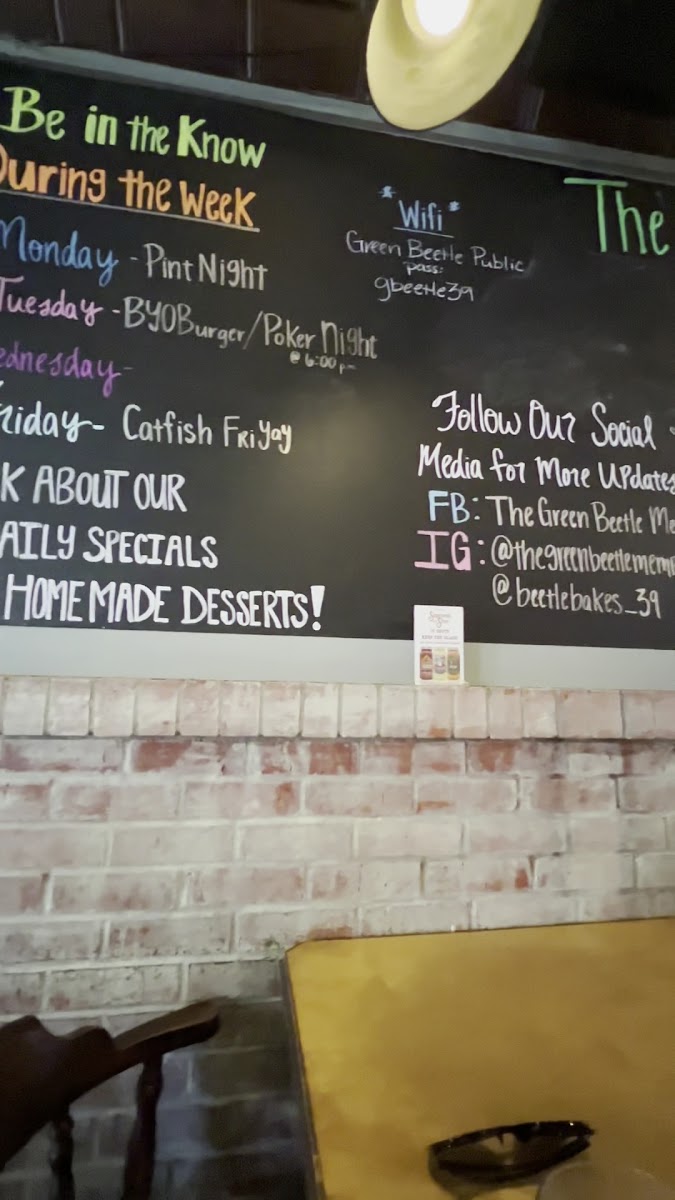 Be in the Know
During the Week
Monday - Pint Night
Tuesday - BYOBurger/Poker Night
@ 6:00 pm
ednesday-
riday- Catfish FRiyay
K ABOUT OUR
AILY SPECIALS
HOMEMADE DESSERTS!
*Wifi*
Green Beetle Public
pass:
gbeetle39
The
Follow Our Social
Media for More Updates
FB: The Green Beetle Me
IG: @thegreenbeetlemem
@beetlebakes_39